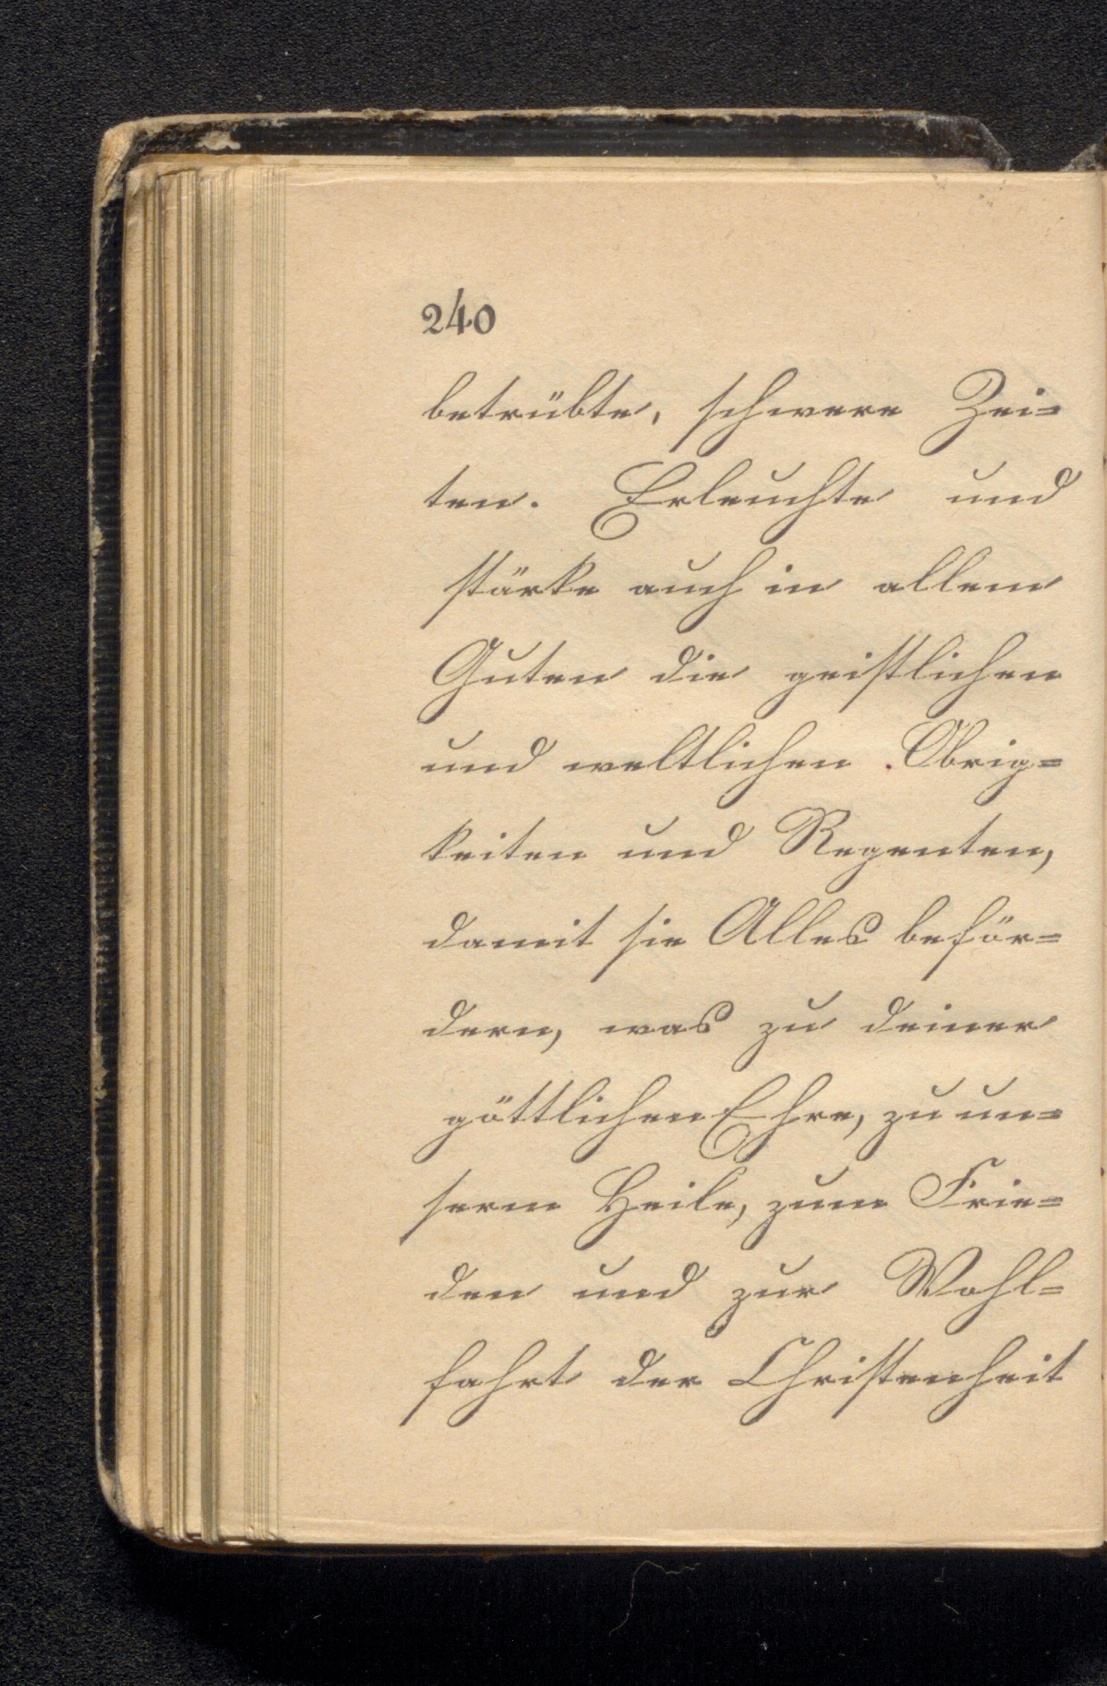 240
betrübte, schwere Zei=
ten. Erleuchte und
stärke auch in allem
Guten die geistlichen
und weltlichen Obrig=
keiten und Regenten,
damit sie Alles beför=
dern, was zu deiner
göttlichen Ehre, zu un=
serm Heile, zum Frie=
den und zur Wohl=
fahrt der Christenheit